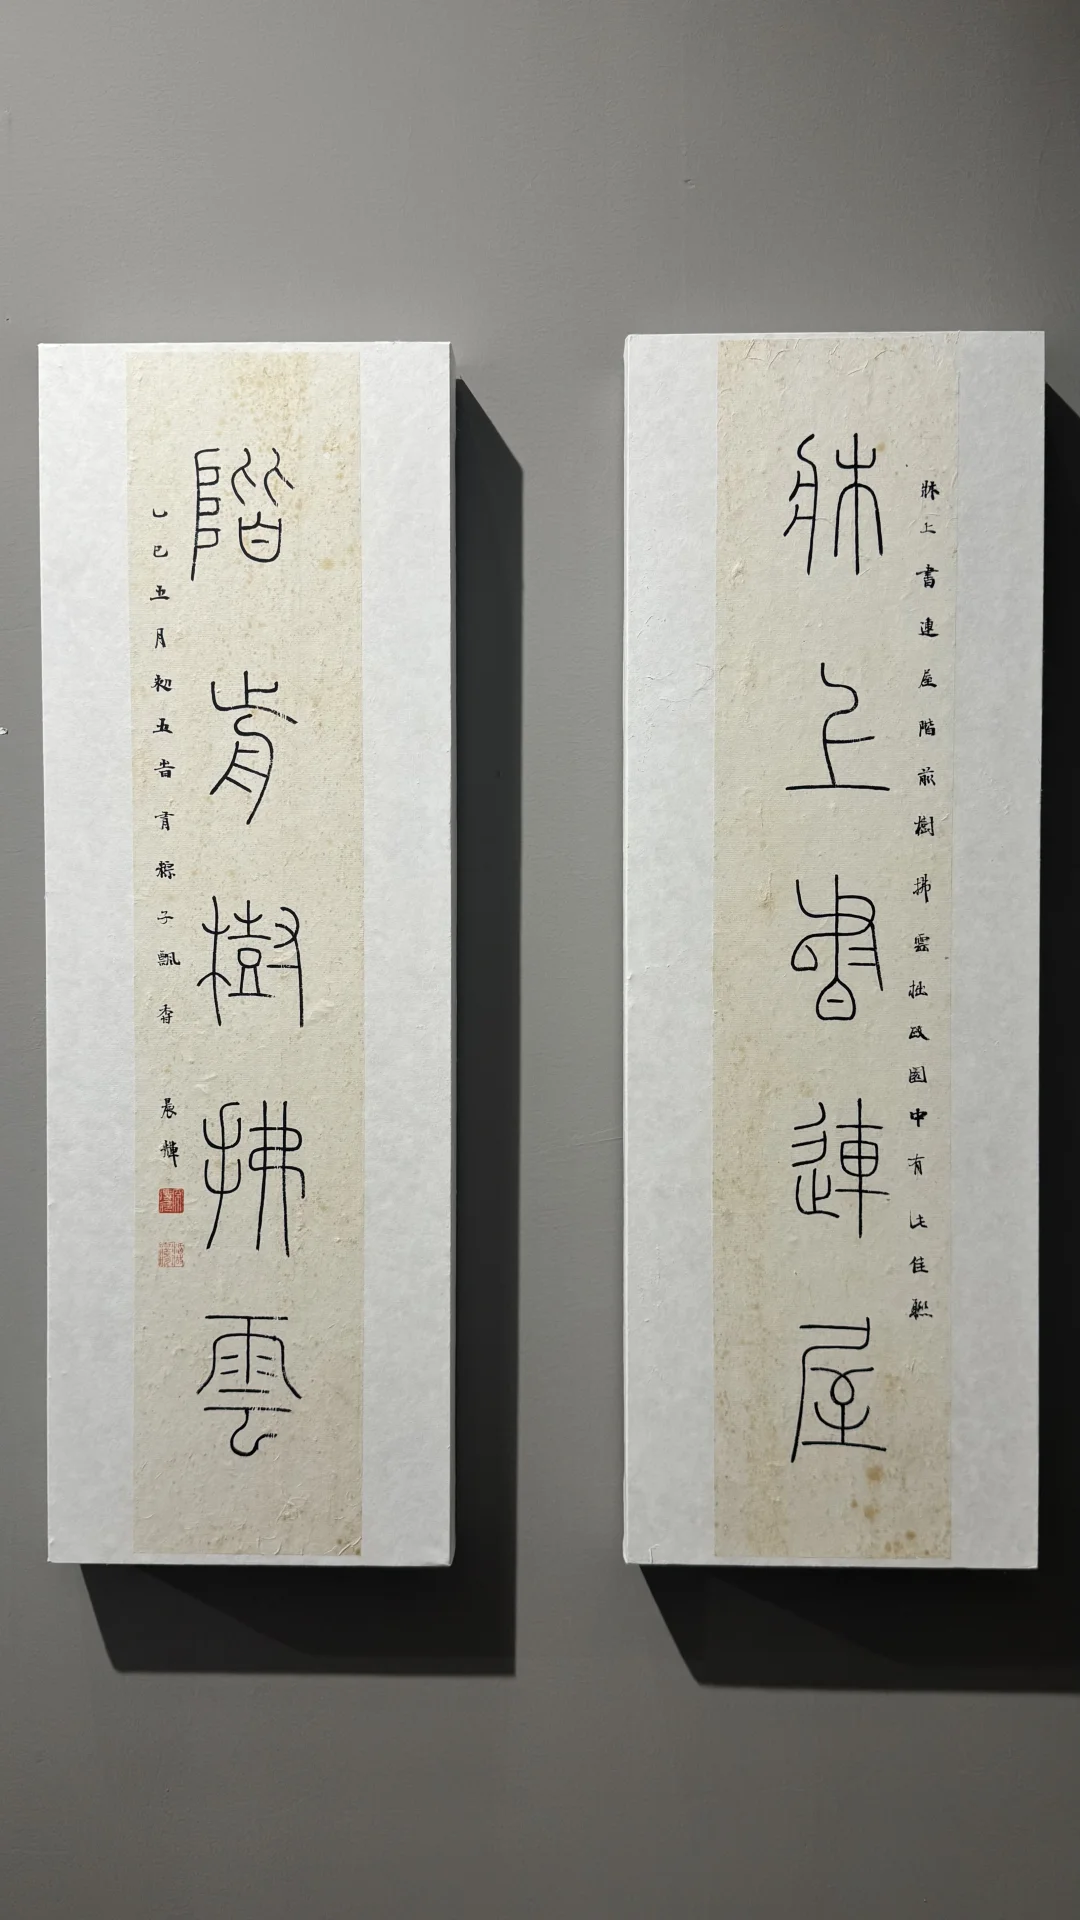 牀上書連屋階前樹拂雲拙政園中有此佳聯
牀上書連屋
階歬樹拂雲
乙巳五月初五旹有粽子飄香 晨輝